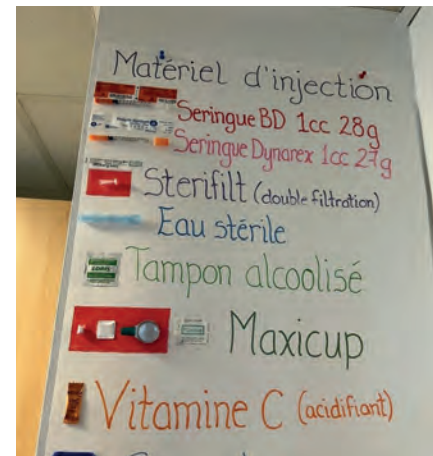 Matériel d'injection
Seringue BD 1cc 28g
Seringue Dynarex 1cc 27g
Sterifilt (double filtration)
Eau stérile
Tampon alcoolisé
Maxicup
Vitamine C (acidifiant)